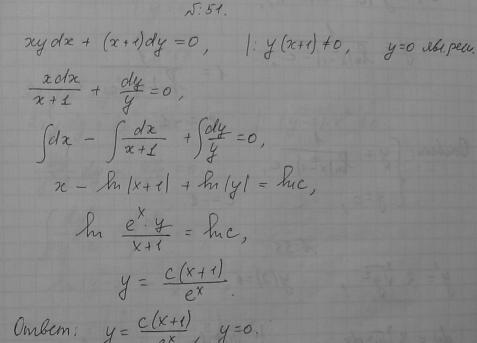 № 51.
xy dx + (x+1) dy = 0, |: y(x+1) ≠ 0, y=0 явл реш.
xdx/(x+1) + dy/y = 0,
∫dx − ∫dx/(x+1) + ∫dy/y = 0,
x − ln|x+1| + ln|y| = ln c,
ln (e^x · y)/(x+1) = ln c,
y = c(x+1)/e^x.
Ответ: y = c(x+1)/e^x, y=0.